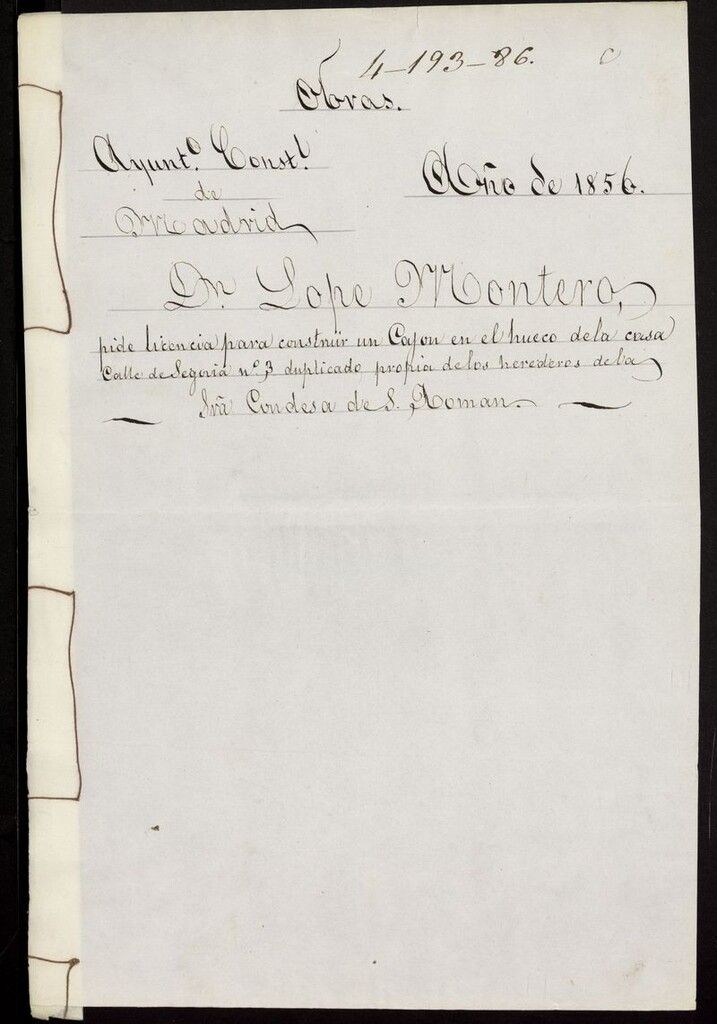 4-193-86. C
Obras.
Ayunt.º Const.l
de
Madrid
Año de 1856.
Dn. Lope Montero,
pide licencia para construir un Cajon en el hueco de la casa
Calle de Segovia nº 3 duplicado propia de los herederos de la
Srã Condesa de S. Roman.